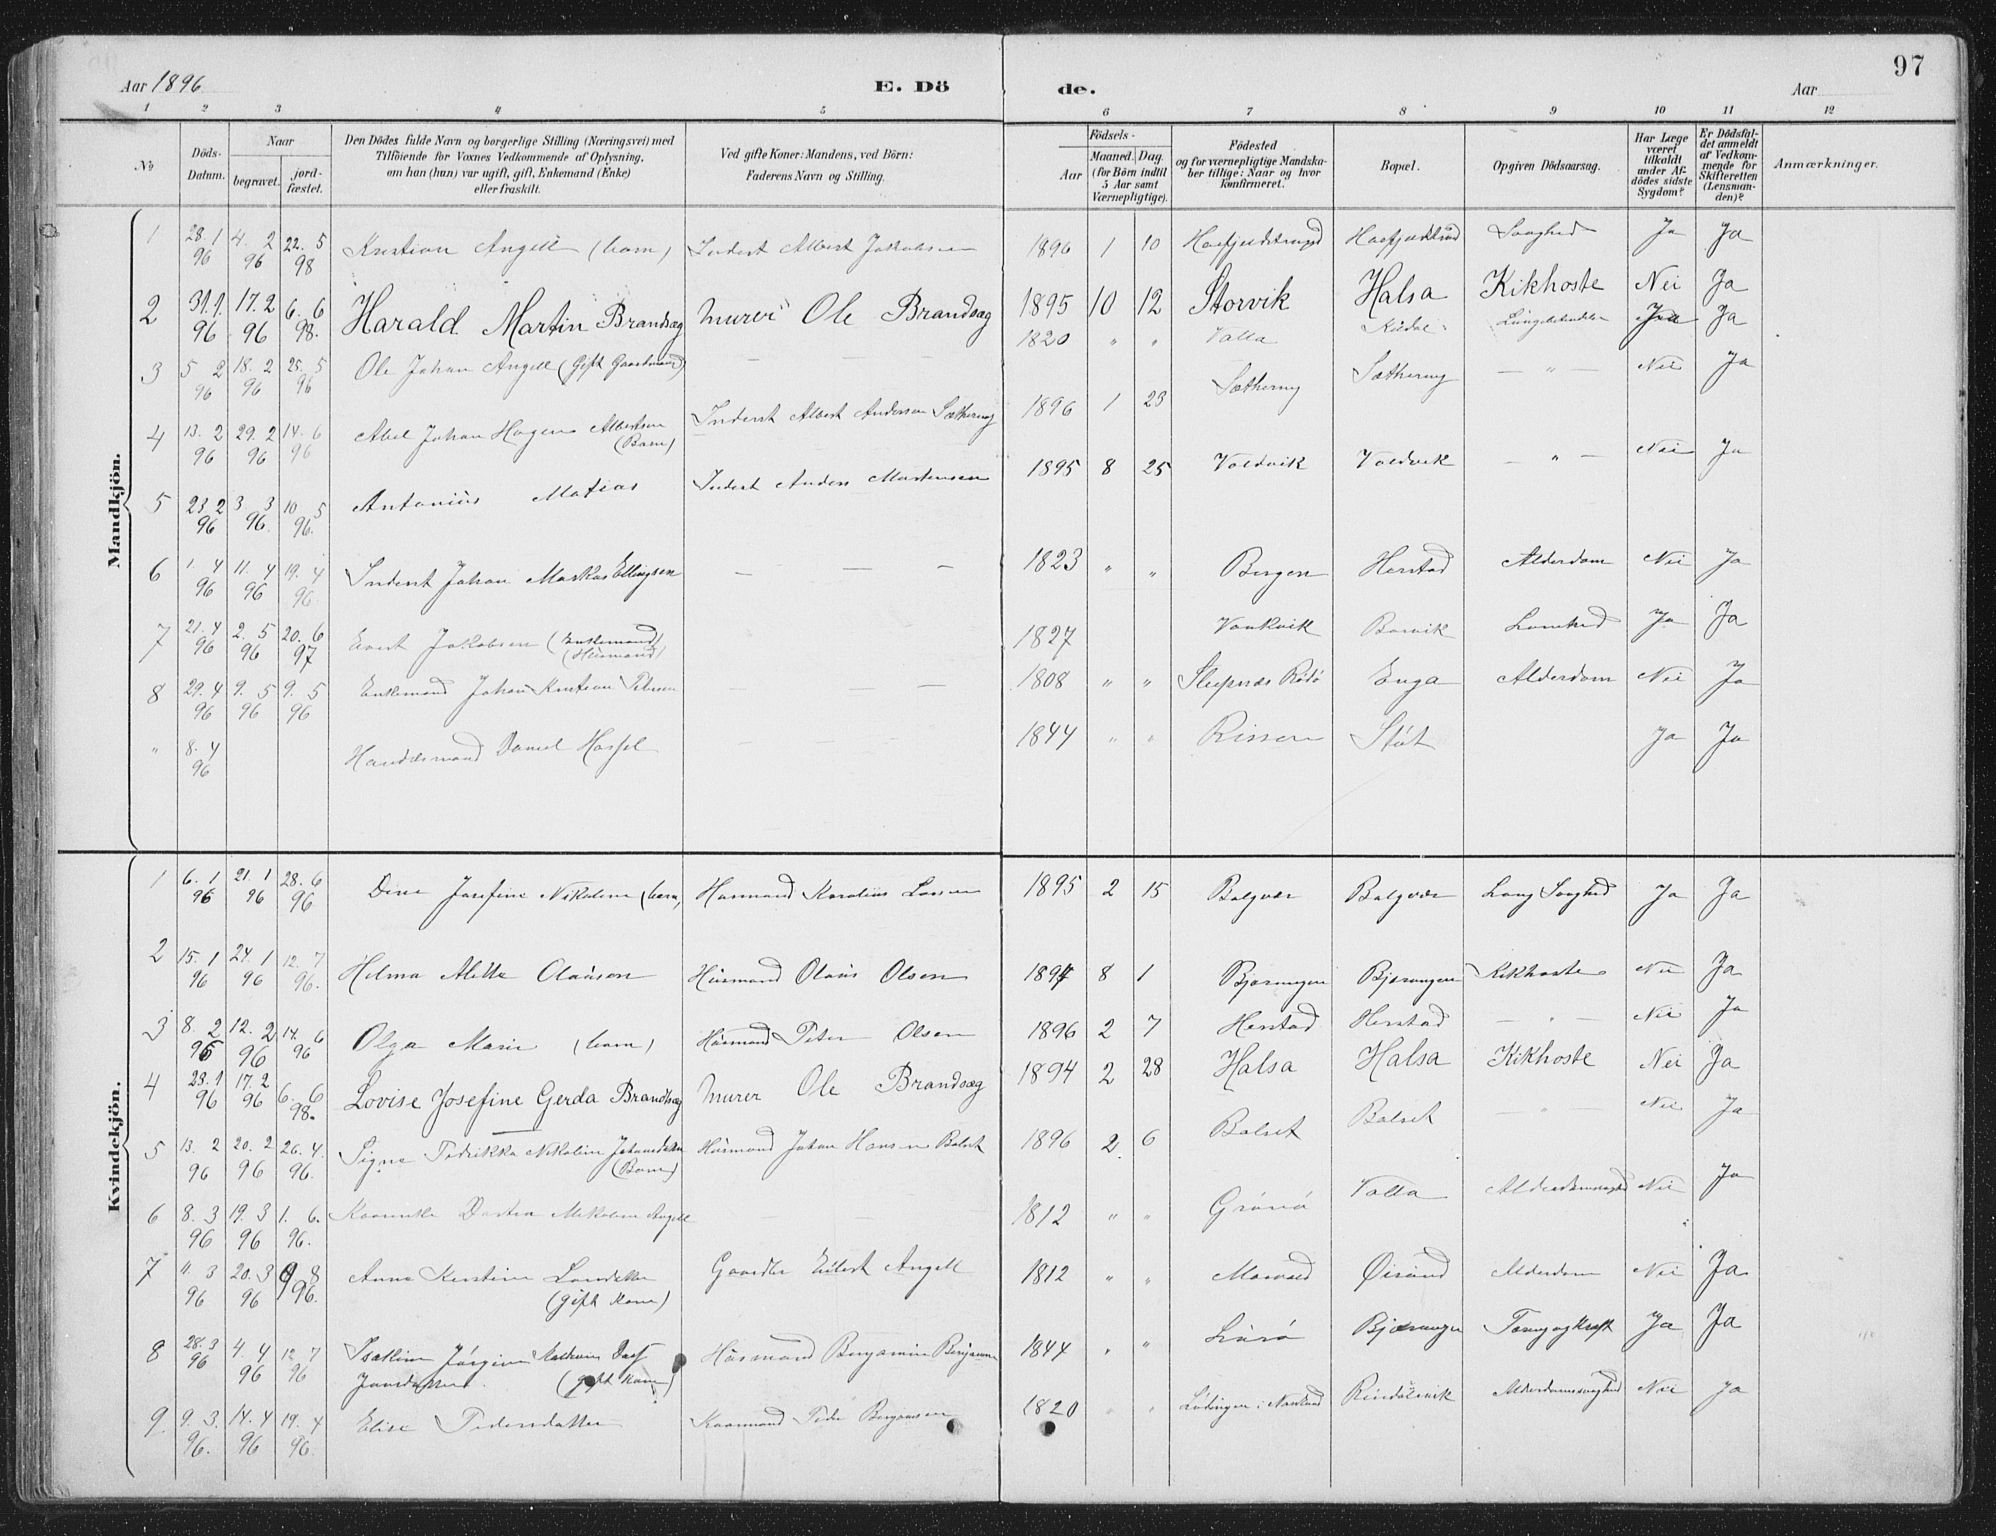 97
Aar 1896
E. Dö
de.
Aar
1 2 3 4 5 6 7 8 9 10 11 12
No
Döds-Datum.
Naar
begravet.
jord-fæstet.
Den Dödes fulde Navn og borgerlige Stilling (Næringsvei) med
Tilföiende for Voxnes Vedkommende af Oplysning,
om han (hun) var ugift, gift, Enkemand (Enke)
eller fraskilt.
Ved gifte Koner: Mandens, ved Börn:
Faderens Navn og Stilling.
Födsels-
Aar
Maaned. Dag.
(for Börn indtil
5 Aar samt
Værnepligtige).
Födested
og for værnepligtige Mandska-
ber tillige: Naar og hvor
konfirmeret.
Bopæl.
Opgiven Dödsaarsag.
Har Læge
været
tilkaldt
under Af-
dödes sidste
Sygdom?
Er Dödsfal-
det anmeldt
af Vedkom-
mende for
Skifteretten
(Lensman-
den)?
Anmærkninger.
Mandkjön.
1 28. 1 96 4. 2 96 22. 5 98 Kristian Angell (barn) Inderst Albert Jakobsen 1896 1 10 Svaghed Ja Ja
2 31. 1. 96 17. 2 96 6. 6 98. Harald Martin Brandsæg Murer Ole Brandsæg 1895 10 12 Storvik Halsa Kikhoste Nei Ja
3 5 2 96 18. 2 96 25. 5 96 Ole Johan Angell (Gift Gaardmand) — — — 1820 " " Valla Kildal Ja Ja
4 13. 2 96 29. 2 96 14. 6 96 Abel Johan Hagen Albertsen (Barn) Inderst Albert Andersen Sætherng 1896 1 23 Sætherng Sætherng — " — Nei Ja
5 23 2 96 3 3 96. 10 5 96. Antonius Matias Inderst Anders Mortensen 1895 8 25 Valdvik Valdvik — " — Nei Ja
6 1. 4 96 11. 4 96 19. 4 96. Inderst Johan Markus Ellingsen — — — 1823 " " Bergen Herstad Alderdom Nei Ja
7 21. 4 96 2. 5 96 20. 6 97 Evert Jakobsen (Enkemand) (Husmand) 1827 Vankvik Ja Ja
8 29. 4 96 9. 5 96 9. 5 96 Enkemand Johan Kristian Petersen — — — 1808 " " Sleipnæs Rödö Enga Alderdom Nei Ja
" 8. 4 96 Handelsmand Daniel Hassel — — — 1844 " " Rissen Stöt Ja Ja
Kvindekjön.
1 6. 1 96 21. 1 96 28. 6 96 Dina Josefine Nikoline (barn) Husmand Karolius Larsen 1895 2 15 Balgvær Balgvær Lang Svaghed Ja Ja
2 15. 1 96 24. 1 96 12. 7 96. Helma Alette Olausen Husmand Olaus Olsen 1894 8 1 Bjærangen Bjærangen Kikhoste Nei Ja
3 8. 2 96 12. 2 96 14. 6 96 Olga Marie (barn) Husmand Peter Olsen 1896 2 7 Herstad Herstad — " — Nei Ja
4 23. 1 96 17. 2 96 6. 6 98. Lovise Josefine Gerda Brandsæg Murer Ole Brandsæg 1894 2 28 Halsa Halsa Kikhoste Nei Ja
5 13. 2 96 20. 2 96 26. 4. 96. Signe Fredrikka Nikoline Johansdatter (Barn) Husmand Johan Hansen Balset 1896 2 6 Balset Balset — " — Nei Ja
6 8. 3 96 19. 3 96 1. 6. 96. Nikoline Angell — — 1812 " " Grönö Valla Alderdomssvaghed Nei Ja
7 11. 3 96 20. 3 96 9 8 96. Anna Kerstine (gift Kone) Eilert Angell 1812 " " Øisund Alderdom Nei Ja
8 28. 3 96 4. 4 96 12. 7 96 Isakine Jörgine Jansdatter. (gift Kone) Husmand Benjamin Benjaminsen 1844 " " Lurö Bjærangen Ja Ja
9. 9. 3. 96. 14. 4 96 19. 4 96. Elise Pedersdatter Kaarmand Peder 1820 " " Lödingen i Nordland Alderdomssvaghed Nei Ja